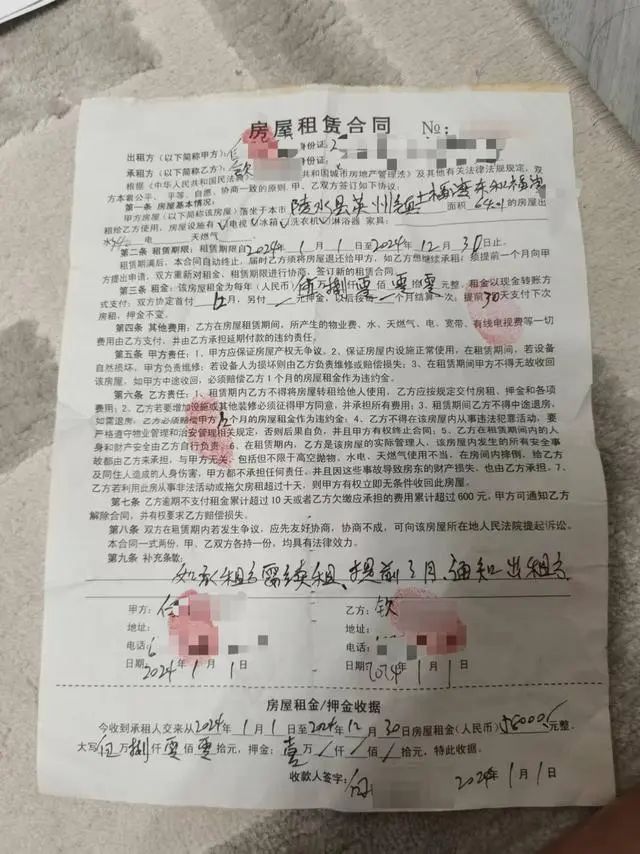 房屋租赁合同 №:
出租方(以下简称甲方): 身份证:
承租方(以下简称乙方): 钦 身份证:
根据《中华人民共和国民法 共和国城市房地产管理法》及其他有关法律法规规定,双
方本着公平、平等、自愿、协商一致的原则,甲、乙双方签订如下协议:
第一条 房屋基本情况:
甲方房屋(以下简称该房屋)落坐于本市 陵水县英州镇 面积 房屋出
租给乙方使用,房屋设施有√电视√冰箱√洗衣机√淋浴器 家具:
水 电 天燃气
第二条 租赁期限:租赁期限自2024年1月1日至2024年12月30日止。
租赁期满后,本合同自动终止,届时乙方须将房屋退还给甲方,如乙方想继续承租,须提前一个月向甲
方提出申请,双方重新对租金、租赁期限进行协商,签订新的租赁合同。
第三条 租金:该房屋租金为每年(人民币) 伍万捌仟零佰零拾零元整,租金以现金转账方
式支付;双方协定首付12月,另付 元押金,以后按每 个月结算一次,提前30天支付下次
房租,押金不变。
第四条 其他费用:乙方在房屋租赁期间,所产生的物业费、水、天燃气、电、宽带、有线电视费等一切
费用由乙方支付,并由乙方承担延期付款的违约责任。
第五条 甲方责任:1、甲方应保证房屋产权无争议。2、保证房屋内设施正常使用,在租赁期间,若设备
自然损坏,甲方负责维修;若设备人为损坏则由乙方负责维修或赔偿损失;3、在租赁期间甲方不得无故收回
该房屋,如甲方中途收回,必须赔偿乙方1个月的房屋租金作为违约金。
第六条 乙方责任:1、租赁期内乙方不得将房屋转租给他人使用,乙方应按规定交付房租、押金和各项
费用;2、乙方若要增加设施或其他装修必须征得甲方同意,并承担所有费用;3、租赁期间乙方不得中途退房,
如需退房,乙方必须赔偿甲方 个月的房屋租金作为违约金;4、乙方不得在该房屋内从事违法犯罪活动,要
严格遵守物业管理和治安管理相关规定,否则后果自负,并且甲方有权终止合同;5、乙方在租赁期间内的人
身和财产安全由乙方自行负责;6、在租赁期内,乙方是该房屋的实际管理人,该房屋内发生的所有安全事
故都由乙方来承担,与甲方无关,包括但不限于高空抛物、水电、天燃气使用不当,在房间内摔倒,给乙方
及同住人造成的人身伤害,甲方都不承担任何责任,并且因这些事故导致房东的财产损失,也由乙方承担。7、
乙方若利用此房从事非法活动或拖欠房租超过十天,则甲方有权立即无条件收回此房屋。
第七条 乙方逾期不支付租金累计超过10天或者乙方欠缴应承担的费用累计超过600元,甲方可通知乙方
解除合同,并有权要求乙方赔偿损失。
第八条 双方在租赁期内若发生争议,应先友好协商,协商不成,可向该房屋所在地人民法院提起诉讼。
本合同一式两份,甲、乙双方各持一份,均具有法律效力。
第九条 补充条款:
如承租方需续租、提前3月、通知出租方
甲方: 乙方:钦
地址: 地址:
电话: 电话:
日期:2024年1月1日 日期:2024年1月1日
房屋租金/押金收据
今收到承租人交来从2024年1月1日至2024年12月30日房屋租金(人民币)58000元整,
大写伍万捌仟零佰零拾元,押金:壹万/仟/佰/拾元,特此收据。
收款人签字: 2024年1月1日